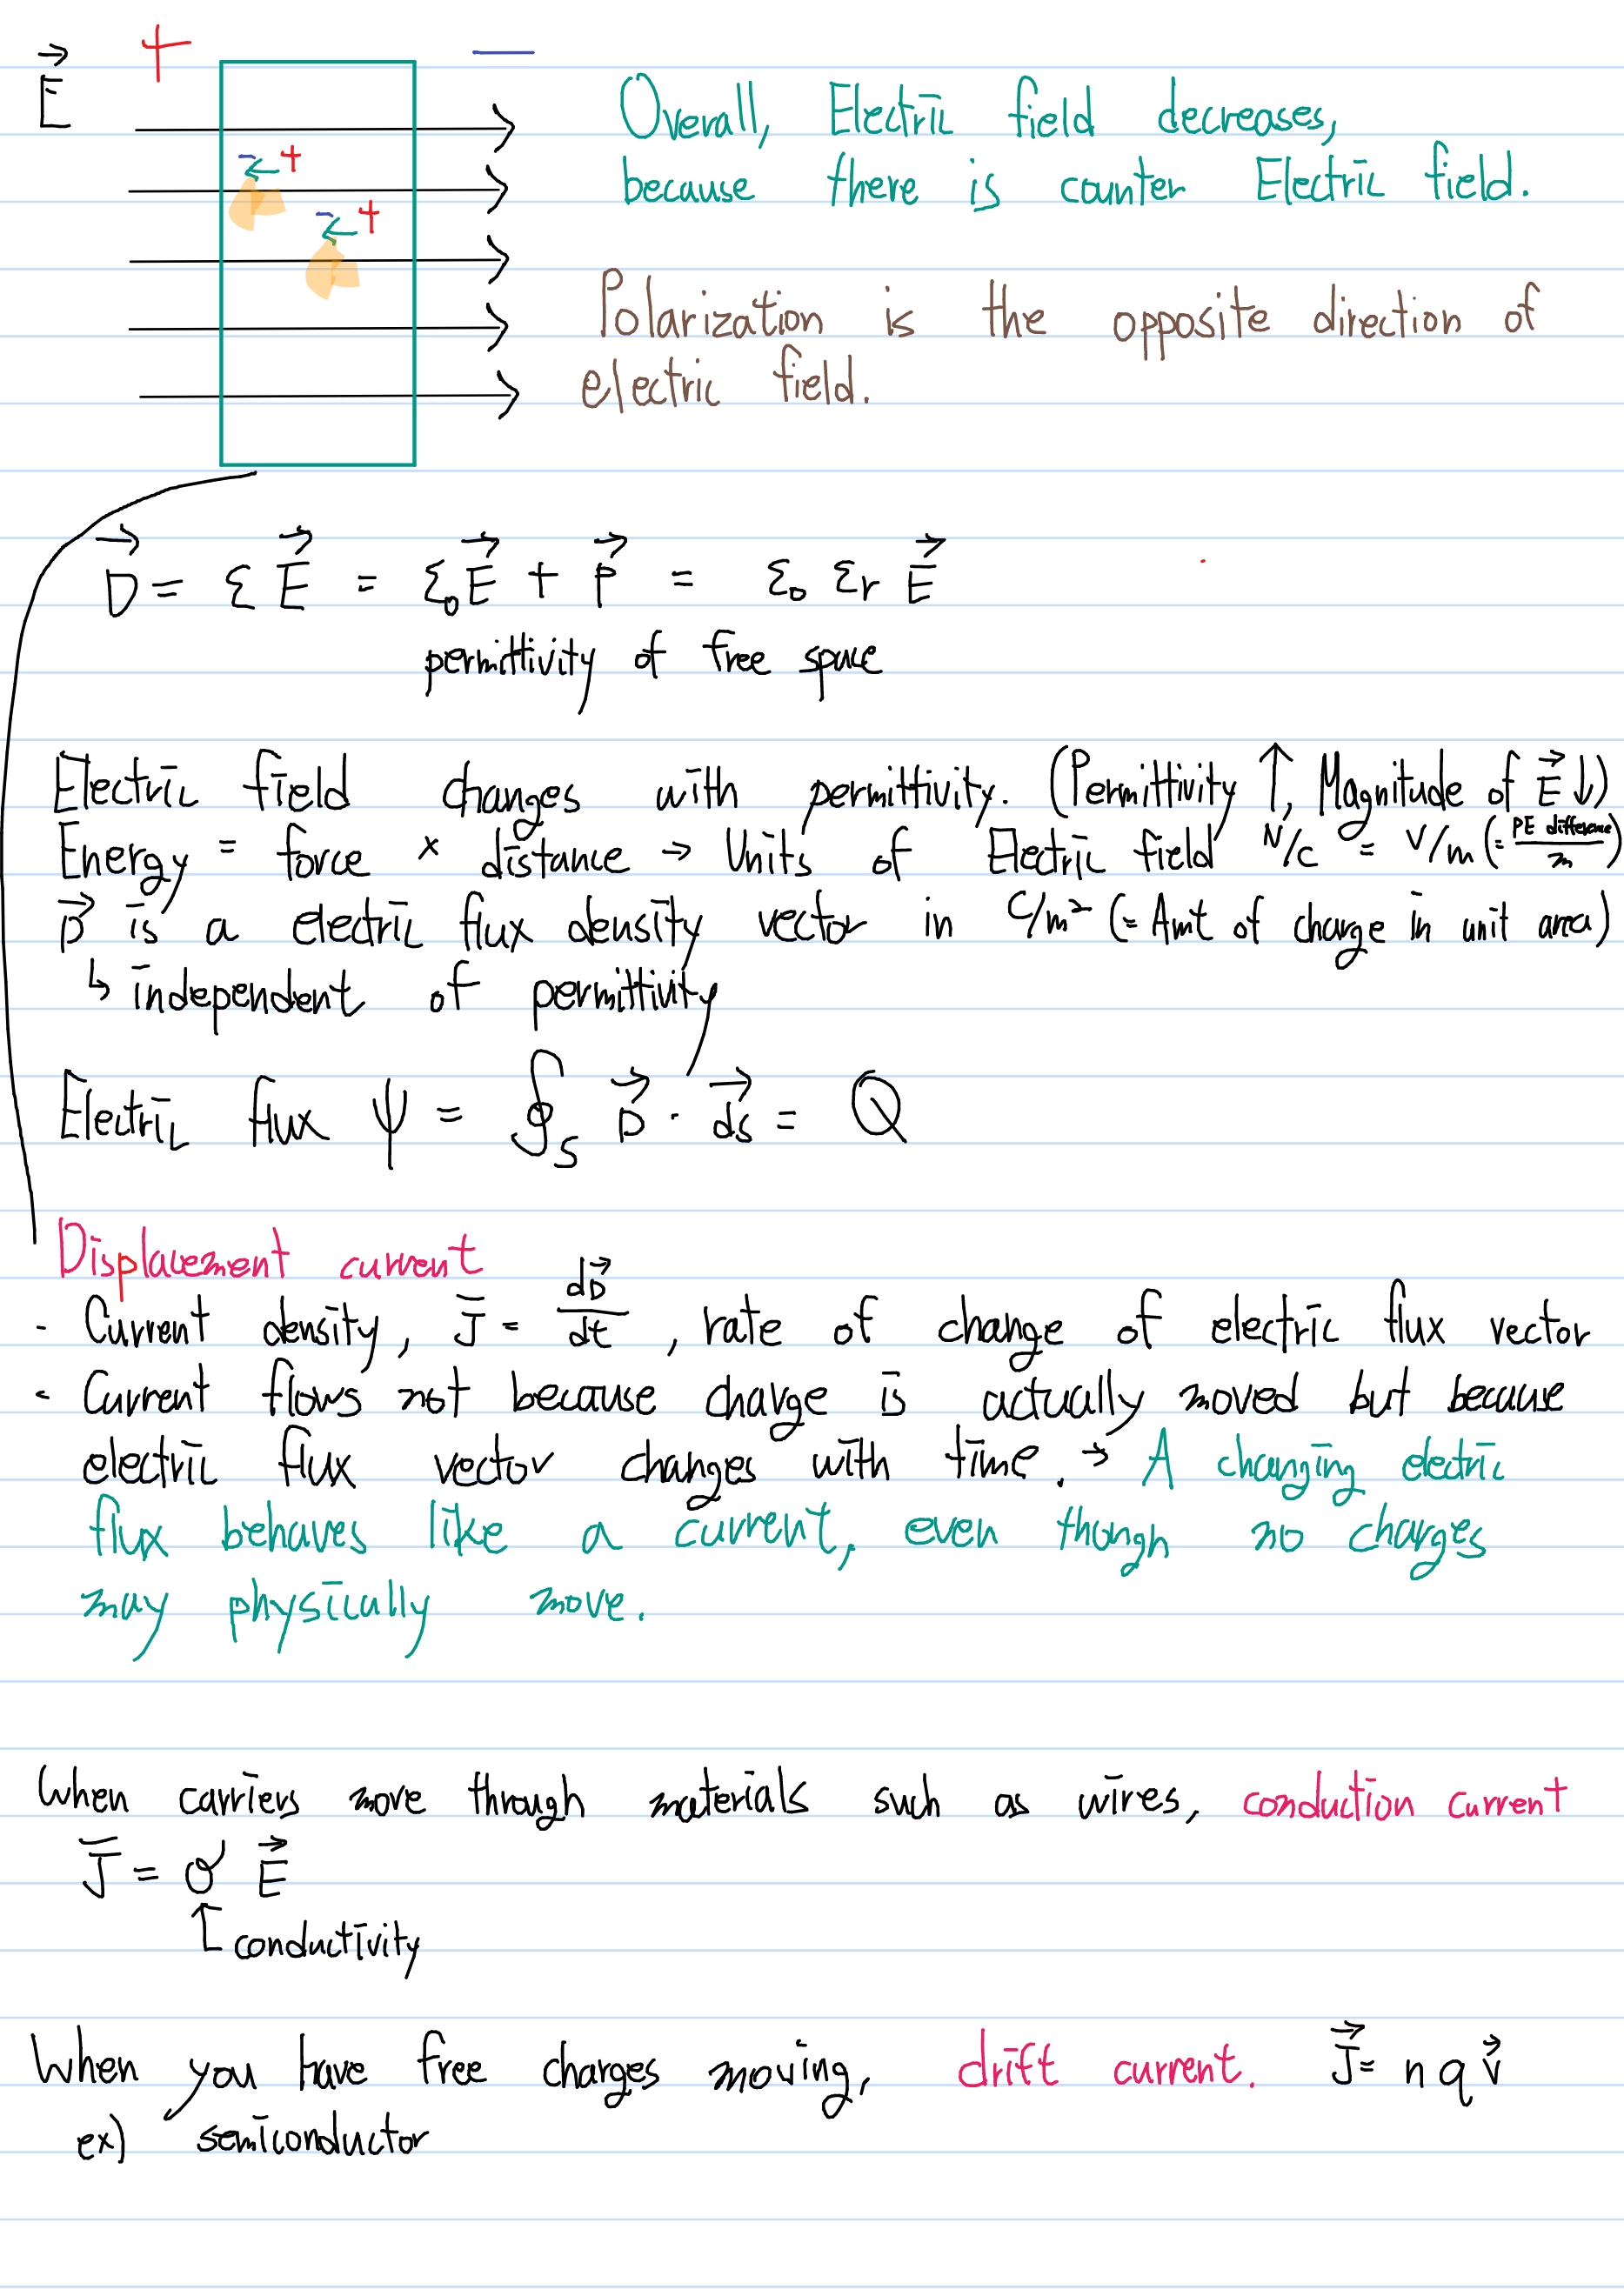 E⃗ + −
− + 
− +
Overall, Electric field decreases,
because there is counter Electric field.
Polarization is the opposite direction of
electric field.
D⃗ = ε E⃗ = ε₀E⃗ + P⃗ = ε₀ εr E⃗
permittivity of free space
Electric field changes with permittivity. (Permittivity ↑, Magnitude of E⃗ ↓)
Energy = force × distance → Units of Electric field N/C = V/m (= PE difference / m)
D⃗ is a electric flux density vector in C/m² (= Amt of charge in unit area)
↳ independent of permittivity
Electric flux ψ = ∮s D⃗ · ds⃗ = Q
Displacement current
- Current density, J̄ = dD⃗/dt, rate of change of electric flux vector
- Current flows not because charge is actually moved but because
electric flux vector changes with time. → A changing electric
flux behaves like a current, even though no charges
may physically move.
When carriers move through materials such as wires, conduction current
J̄ = σ E⃗
↑ conductivity
When you have free charges moving, drift current. J⃗ = n q v⃗
ex) semiconductor